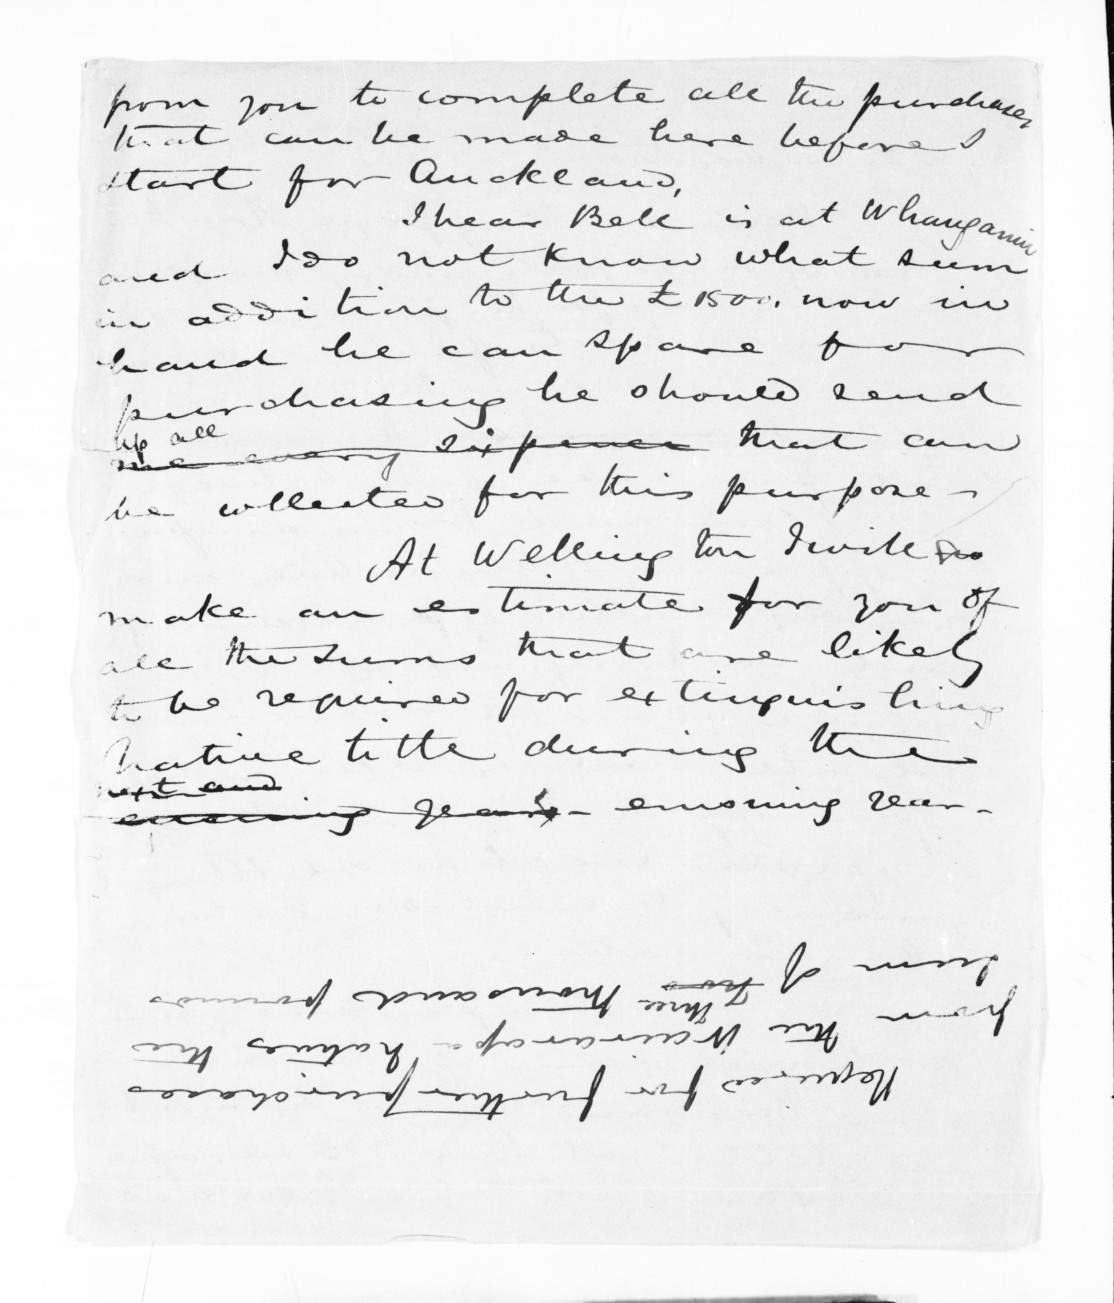 from you to complete all the purchases
that can be made here before I
start for Auckland,
I hear Bell is at Whanganui
and I do not know what sum
in addition to the £1500. now in
hand he can spare for
purchasing he should send
up all
me every sixpence that can
be collected for this purpose -
At Wellington I will
make an estimate for you of
all the sums that are likely
to be required for extinguishing
native title during the
next and
ensuing years - ensuing year -
Required for further purchases
from the Wairarapa Natives the
sum of two three thousand pounds